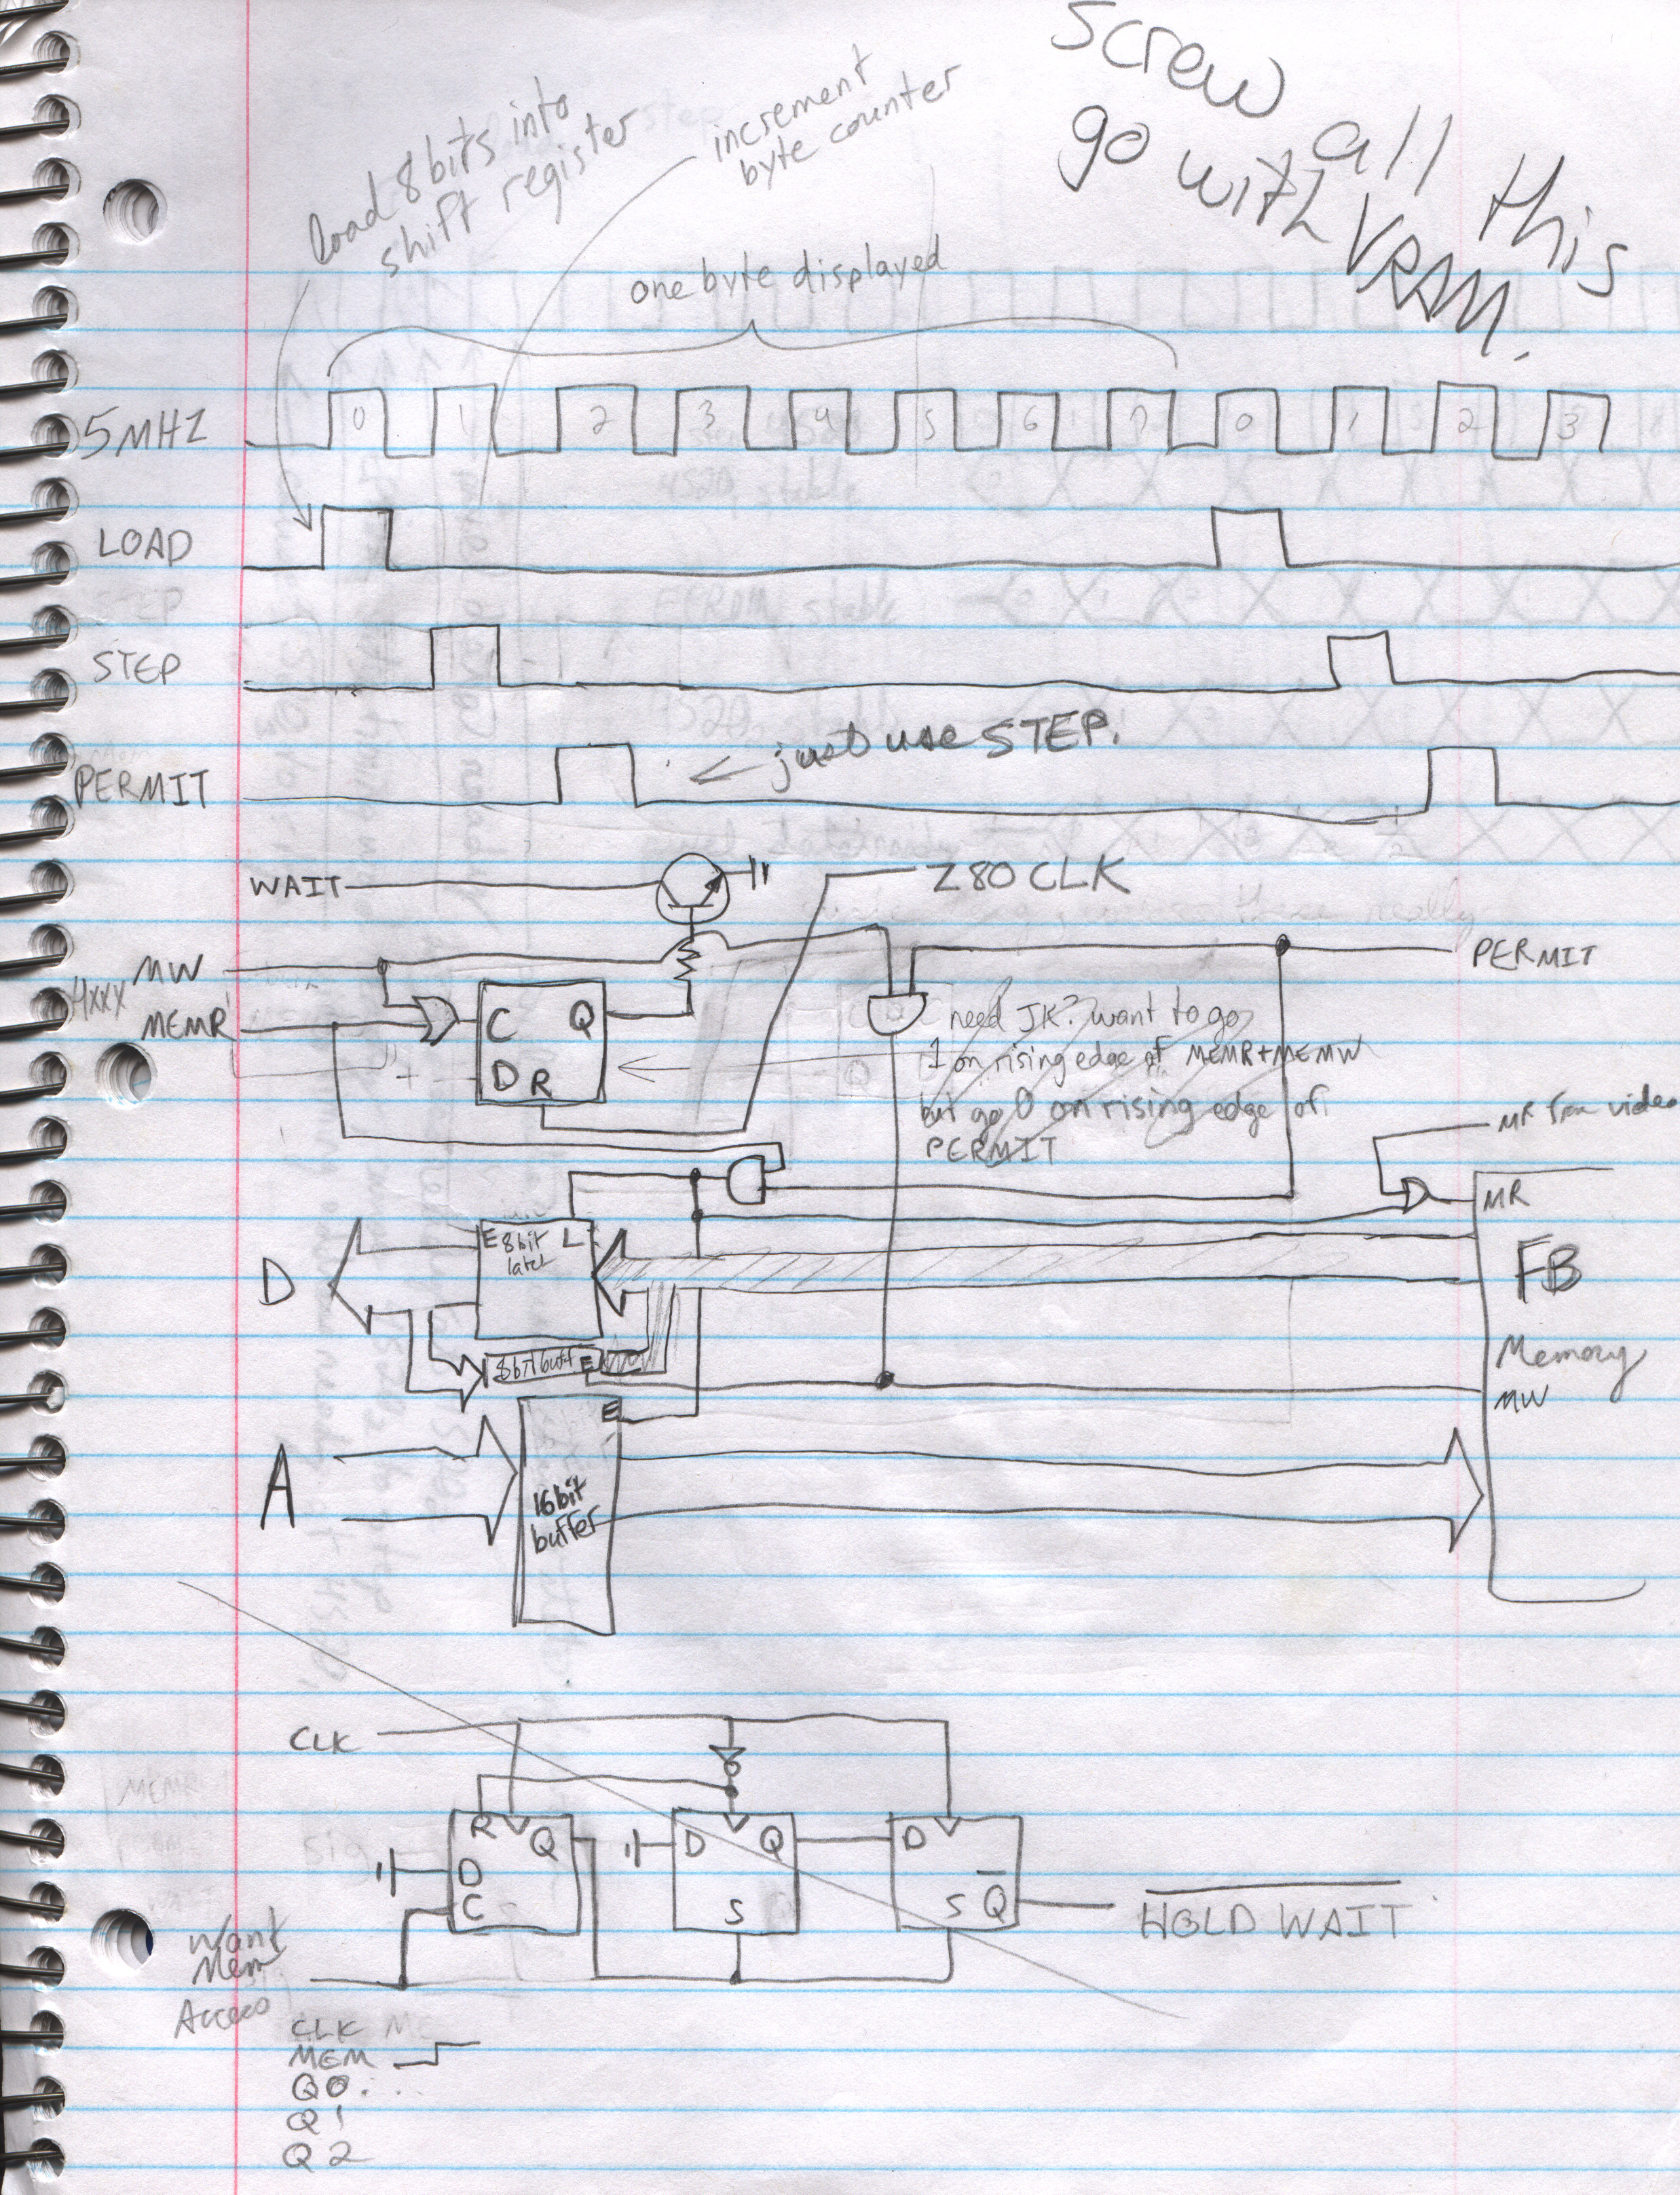 Screw all this
go with VRAM.
load 8 bits into
shift register
increment
byte counter
one byte displayed
5MHZ
0 1 2 3 4 5 6 7 0 1 2 3
LOAD
STEP
PERMIT
← just use STEP.
WAIT
Z80 CLK
MW
PERMIT
4xxx
MEMR
C Q
D R
+
need JK? want to go
1 on rising edge of MEMR+MEMW
but go 0 on rising edge of
PERMIT
MR from video
MR
E 8bit L
latch
D
FB
8bit buff E
Memory
MW
E
A
16bit
buffer
CLK
R Q
D
C
D Q
S
D
S Q̅
HOLD WAIT
Want
Mem
Access
CLK
MEM
Q0
Q1
Q2